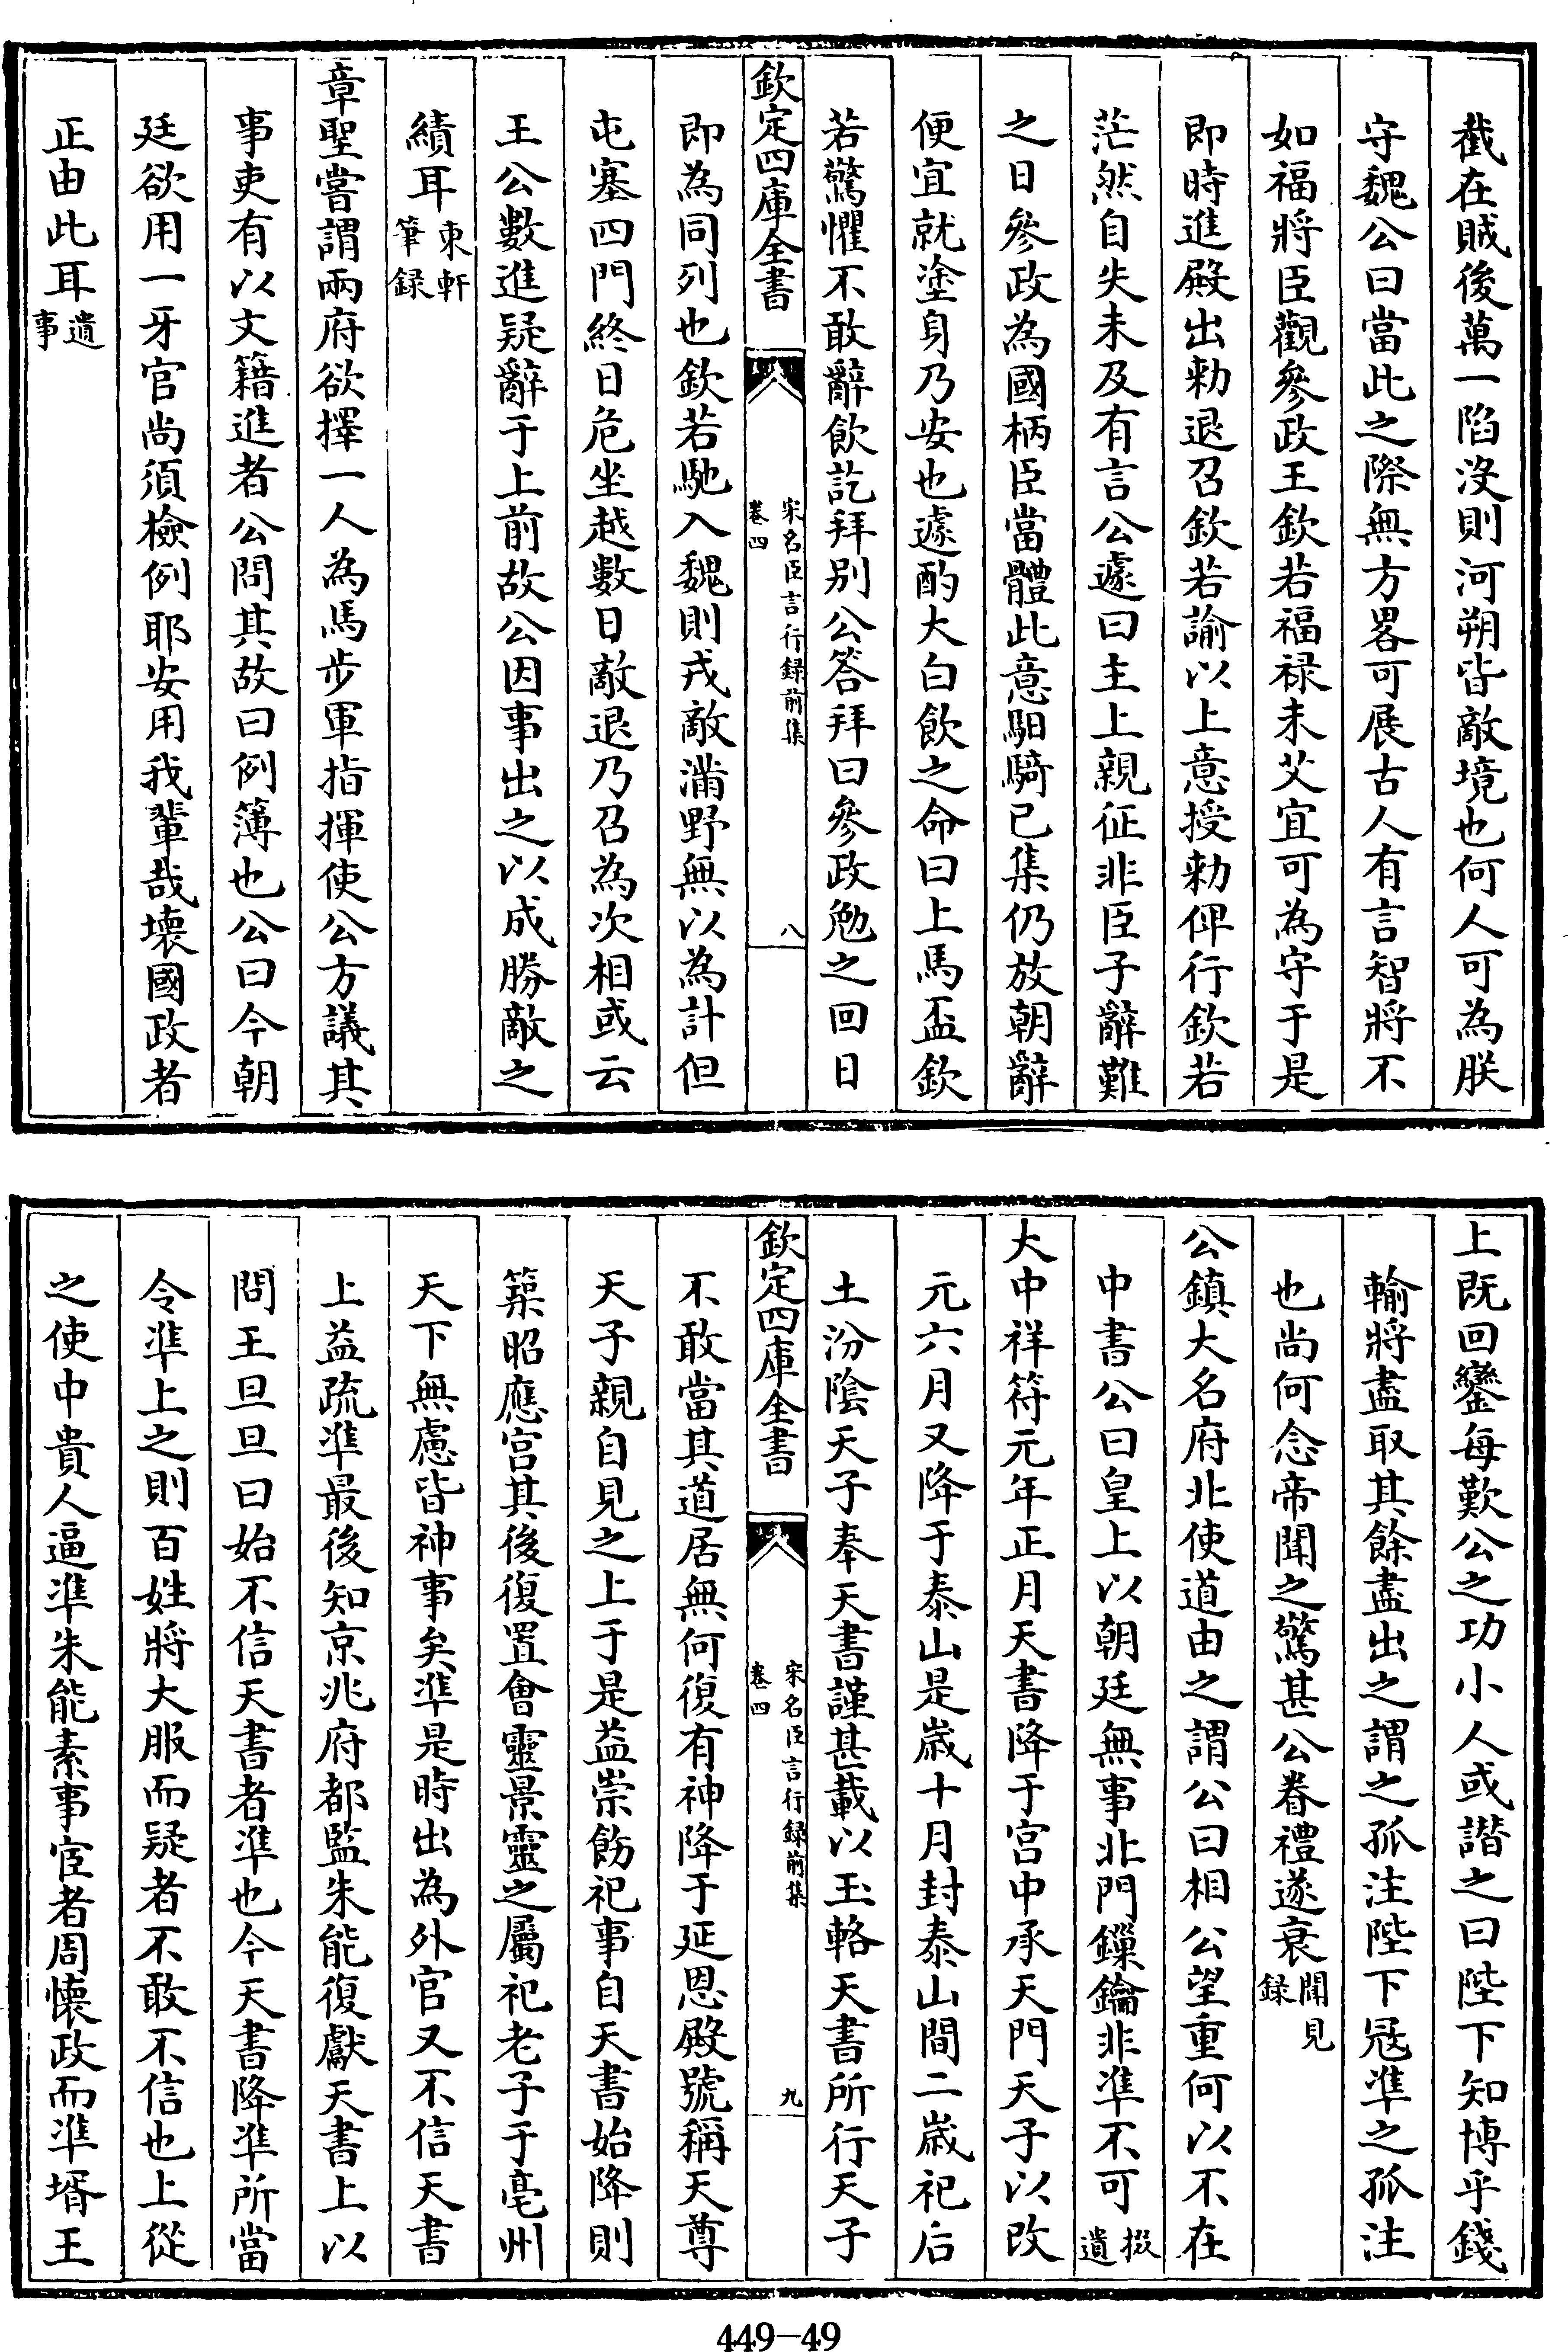 截在賊後萬一陷没則河朔皆敵境也何人可為朕
守魏公曰當此之際無方畧可展古人有言智將不
如福將臣觀參政王欽若福禄未艾宜可為守于是
即時進殿出勅退召欽若諭以上意授勅俾行欽若
茫然自失未及有言公遽曰主上親征非臣子辭難
之日參政為國柄臣當體此意馹騎已集仍放朝辭
便宜就塗身乃安也遽酌大白飲之命曰上馬盃欽
若驚懼不敢辭飲訖拜别公答拜曰參政勉之回日
欽定四庫全書
宋名臣言行録前集
卷四
八
即為同列也欽若馳入魏則戎敵滿野無以為計但
屯塞四門終日危坐越數日敵退乃召為次相或云
王公數進疑辭于上前故公因事出之以成勝敵之
績耳東軒筆録
章聖嘗謂兩府欲擇一人為馬步軍指揮使公方議其
事吏有以文籍進者公問其故曰例簿也公曰今朝
廷欲用一牙官尚須檢例耶安用我輩哉壞國政者
正由此耳遺事
上既回鑾每歎公之功小人或譖之曰陛下知博乎錢
輸將盡取其餘盡出之謂之孤注陛下冦準之孤注
也尚何念帝聞之驚甚公眷禮遂衰聞見録
公鎮大名府北使道由之謂公曰相公望重何以不在
中書公曰皇上以朝廷無事北門鏁鑰非準不可掇遺
大中祥符元年正月天書降于宫中承天門天子以改
元六月又降于泰山是歲十月封泰山間二歲祀后
土汾陰天子奉天書謹甚載以玉輅天書所行天子
欽定四庫全書
宋名臣言行録前集
卷四
九
不敢當其道居無何復有神降于延恩殿號稱天尊
天子親自見之上于是益崇飭祀事自天書始降則
築昭應宫其後復置會靈景靈之屬祀老子于亳州
天下無慮皆神事矣準是時出為外官又不信天書
上益疏準最後知京兆府都監朱能復獻天書上以
問王旦旦曰始不信天書者準也今天書降準所當
令準上之則百姓將大服而疑者不敢不信也上從
之使中貴人逼準朱能素事宦者周懐政而準壻王
449-49